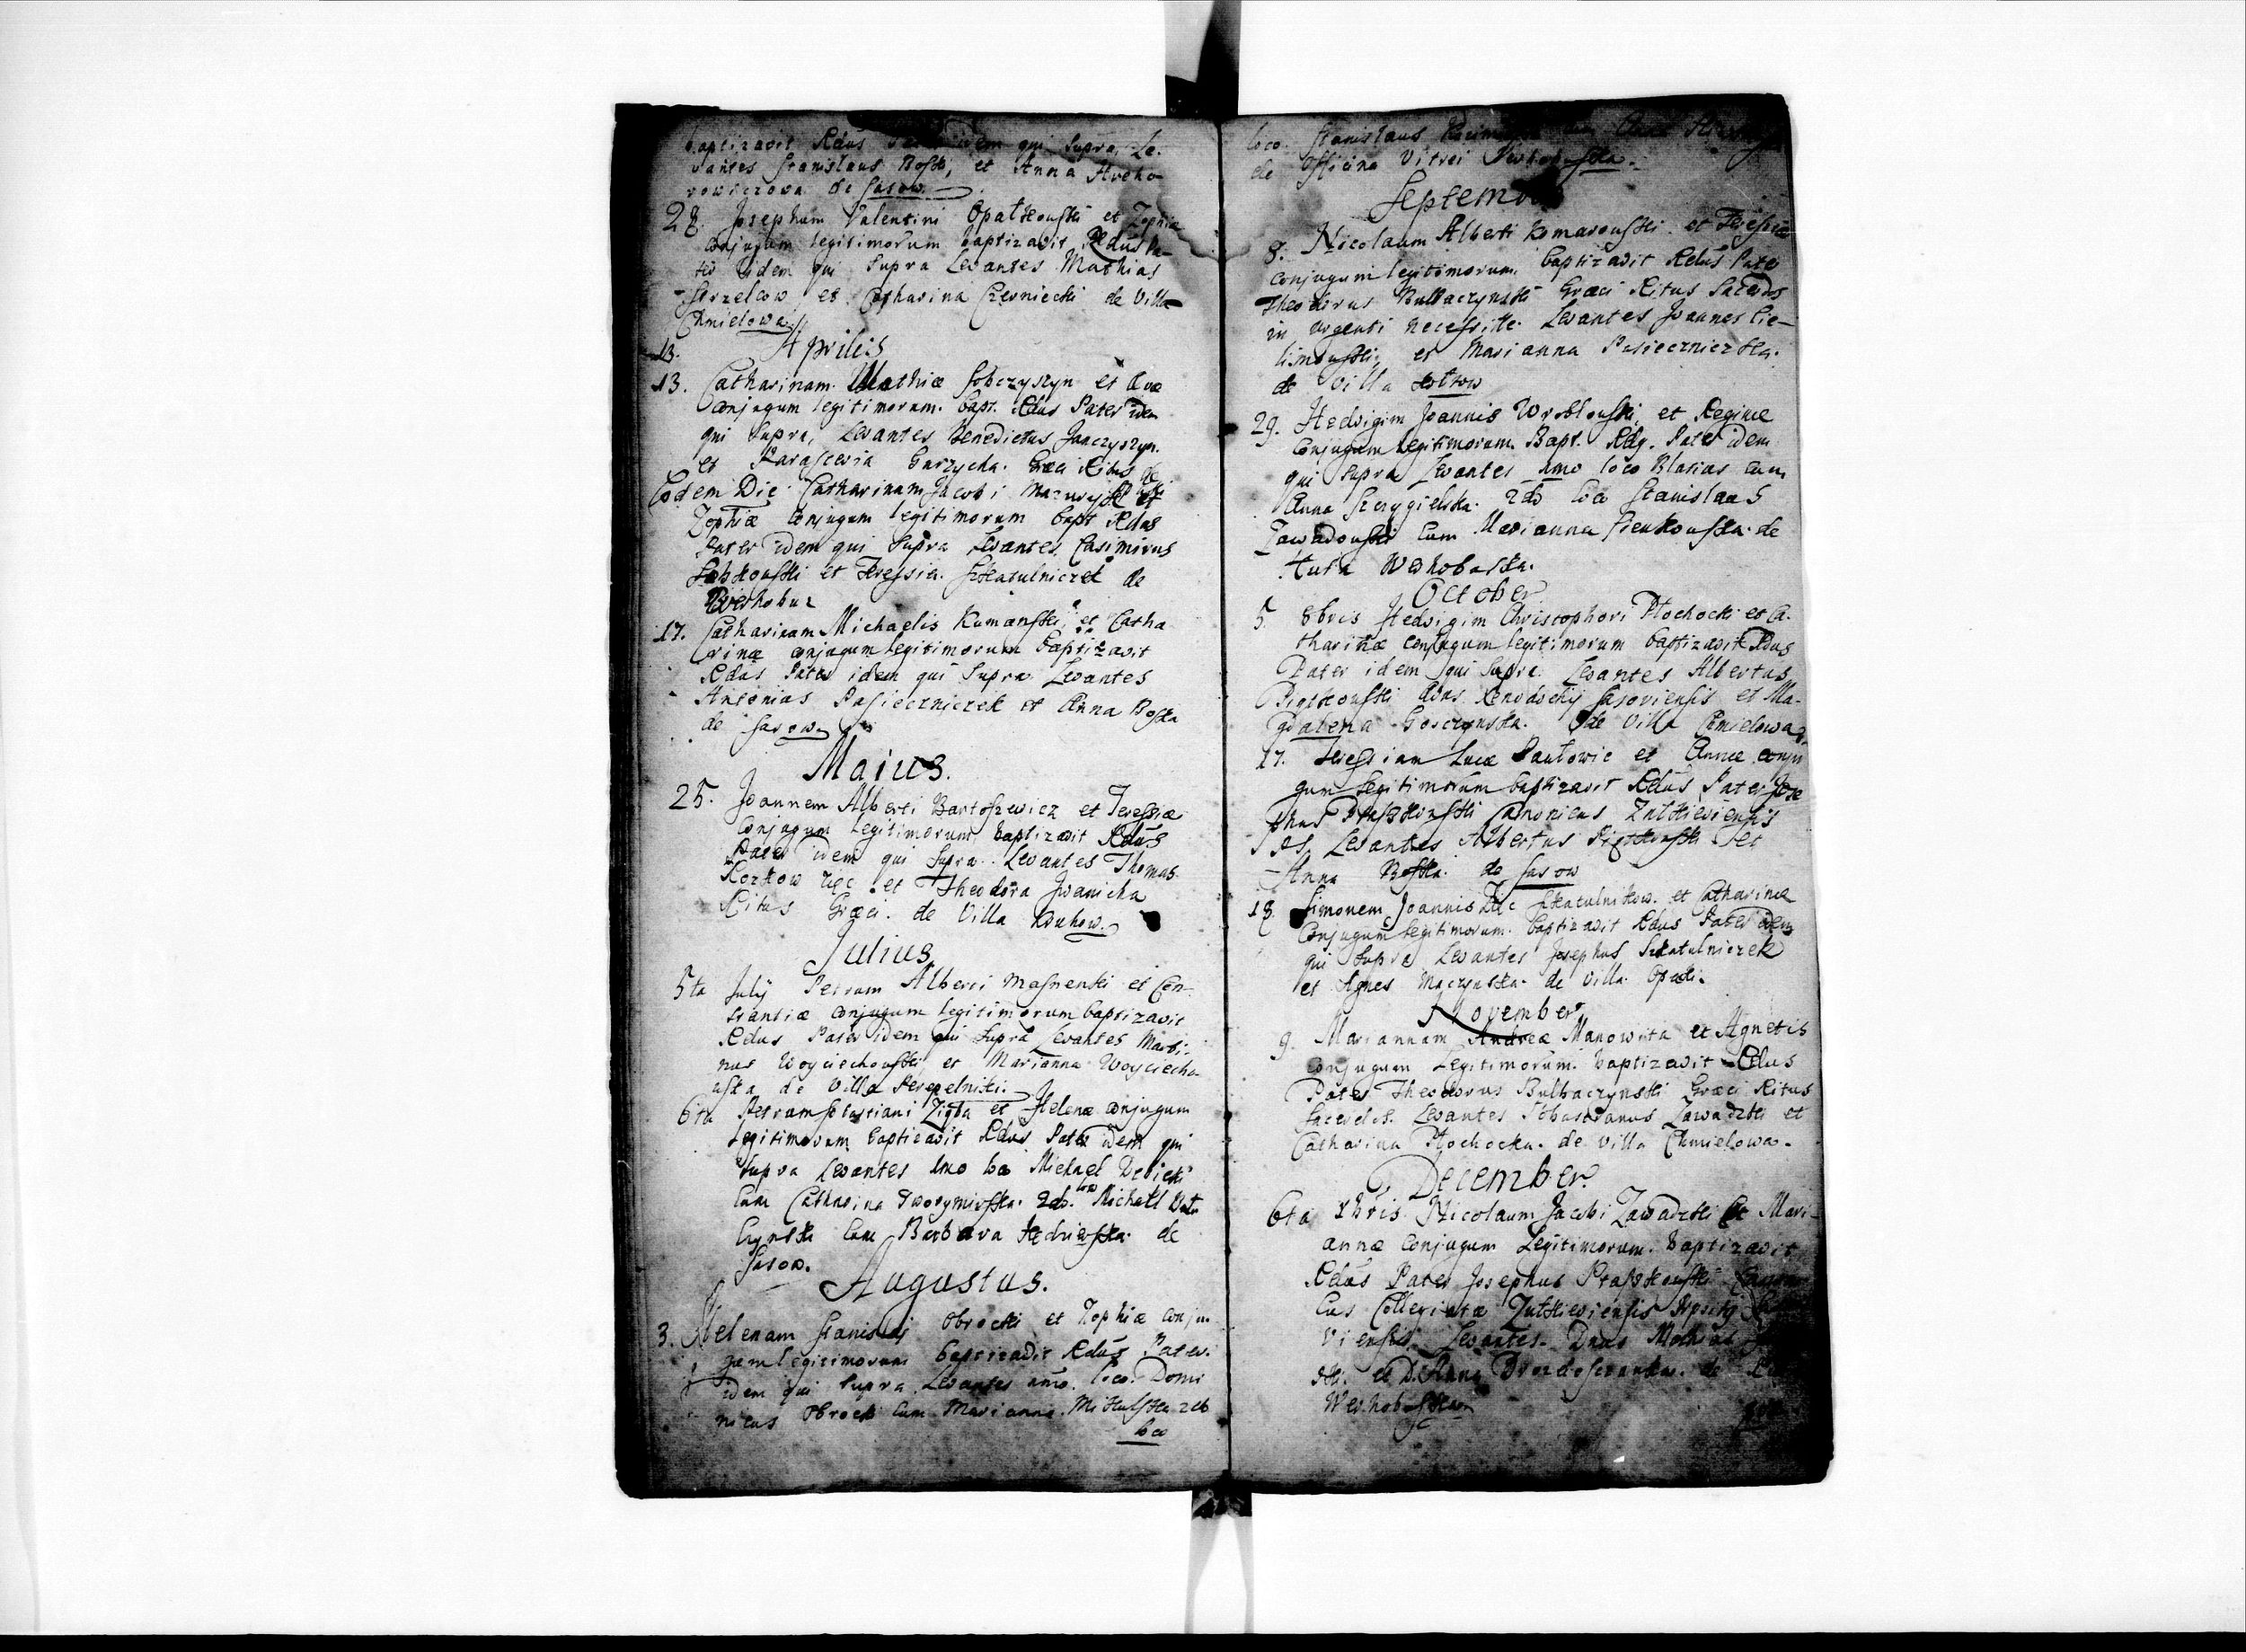 baptizavit Rdus Pater idem qui Supra, Le-
vantes Stanislaus Boski, et Anna Hreho-
rowiczowa de Sasow
28. Josephum Valentini Opatkouski et Zophiæ
Conjugum legitimorum baptizavit Rdus Pa-
ter idem qui Supra Levantes Mathias
Strzelcow et Catharina Czerniecki de Villa
Chmielowa
Aprilis
13.
13. Catharinam Mathiæ Sobczyszyn et Evæ
Conjugum legitimorum bapt. Rdus Pater idem
qui Supra, Levantes Benedictus Janczyszyn
et Parascevia Gurzycha Græci Ritus de
Eodem Die Catharinam Jacobi et
Zophiæ Conjugum legitimorum bapt Rdus
Pater idem qui Supra Levantes Casimirus
Sobkouski et Teressia Szkatulniczek de
Werhobuz
17. Catharinam Michaelis Kumanski et Catha
rinæ conjugum legitimorum baptizavit
Rdus Pater idem qui Supra Levantes
Antonius Pasieczniczek et Anna Boska
de Sasow
Maius.
25. Joannem Alberti Bartoszewicz et Teressiæ
Conjugum legitimorum baptizavit Rdus
Pater idem qui Supra Levantes Thomas
Kozkow et Theodora Iwanicha
Ritus Græci de Villa Kruhow
Julius
5ta Julij Petrum Alberti Masnenski et Con-
stantiæ Conjugum legitimorum baptizavit
Rdus Pater idem qui Supra Levantes Marti-
nus Woyciechouski et Marianna Woyciecho-
uska de Villa Perepelniki
6ta Petrum Sebastiani Zięba et Helenæ conjugum
legitimorum baptizavit Rdus Pater idem qui
Supra Levantes 1mo loco Michael Debicki
cum Catharina 2do loco Michael
cum Barbara de
Sasow.
Augustus.
3. Helenam Stanislaj Obrocki et Zophiæ conju-
gum legitimorum baptizavit Rdus Pater
idem qui Supra Levantes 1mo loco Domi
nicus Obrocki cum Marianna Mikulska 2do
loco
loco Stanislaus cum
de Officina Vitrei Werhobuska
September
8. Nicolaum Alberti Komarouski et Teressiæ
conjugum legitimorum baptizavit Rdus Pater
Theodorus Bulbaczynski Græci Ritus Sacerdos
in urgenti necessitte Levantes Joannes Cie-
limouski et Marianna Pasieczniczka
de Villa Kołtow
29. Hedvigim Joannis Wroblouski et Reginæ
Conjugum legitimorum Bapt. Rdg. Pater idem
qui Supra Levantes 1mo loco Blasius cum
Anna Szczygielska 2do loco Stanislaus
Zawadouski cum Marianna Sienkouska de
Huta Werhobuska.
October
5. 8bris Hedvigim Christophori Płochocki et Ca-
tharinæ conjugum legitimorum baptizavit Rdus
Pater idem qui Supra Levantes Albertus
Piotrouski Xenodochij Sasoviensis et Ma-
gdalena Gosczynska de Villa Chmielowa
17. Teressiam Lucæ Pawłowic et Annæ conju
gum legitimorum baptizavit Rdus Pater Jose
phus Ptaszkouski Canonicus Zułkieviensis
Levantes Albertus et
Anna Boska de Sasow
18. Simonem Joannis Zięc Szkatulnikow et Catharinæ
Conjugum legitimorum baptizavit Rdus Pater idem
qui Supra Levantes Josephus Szkatulniczek
et Agnes Maczynska de Villa Opaki.
November
9. Mariannam Andreæ Manowita et Agnetis
conjugum Legitimorum baptizavit Rdus
Pater Theodorus Bulbaczynski Græci Ritus
Sacerdos. Levantes Sebastianus Zawadzki et
Catharina Płochocka de Villa Chmielowa.
December.
6ta Xbris Nicolaum Jacobi Zawadzki et Mari-
annæ Conjugum Legitimorum baptizavit
Rdus Pater Josephus Ptaszkouski
cus Collegiatæ Zułkieviensis
viensis Levantes Dnus Mathias
ski et D. Anna de
Werhobuska